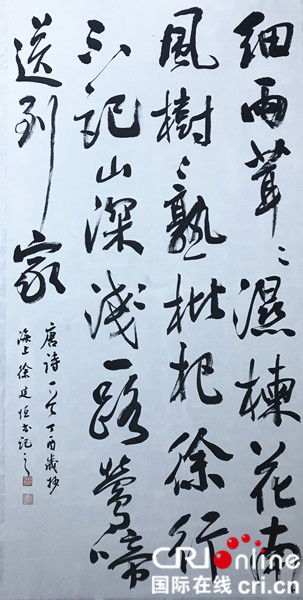 細雨茸〻濕楝花南
風樹〻熟枇杷徐行
不記山深淺一路鶯啼
送到家
唐詩一首丁酉歲杪
海上徐恒书记之
CRI online
国际在线 cri.cn